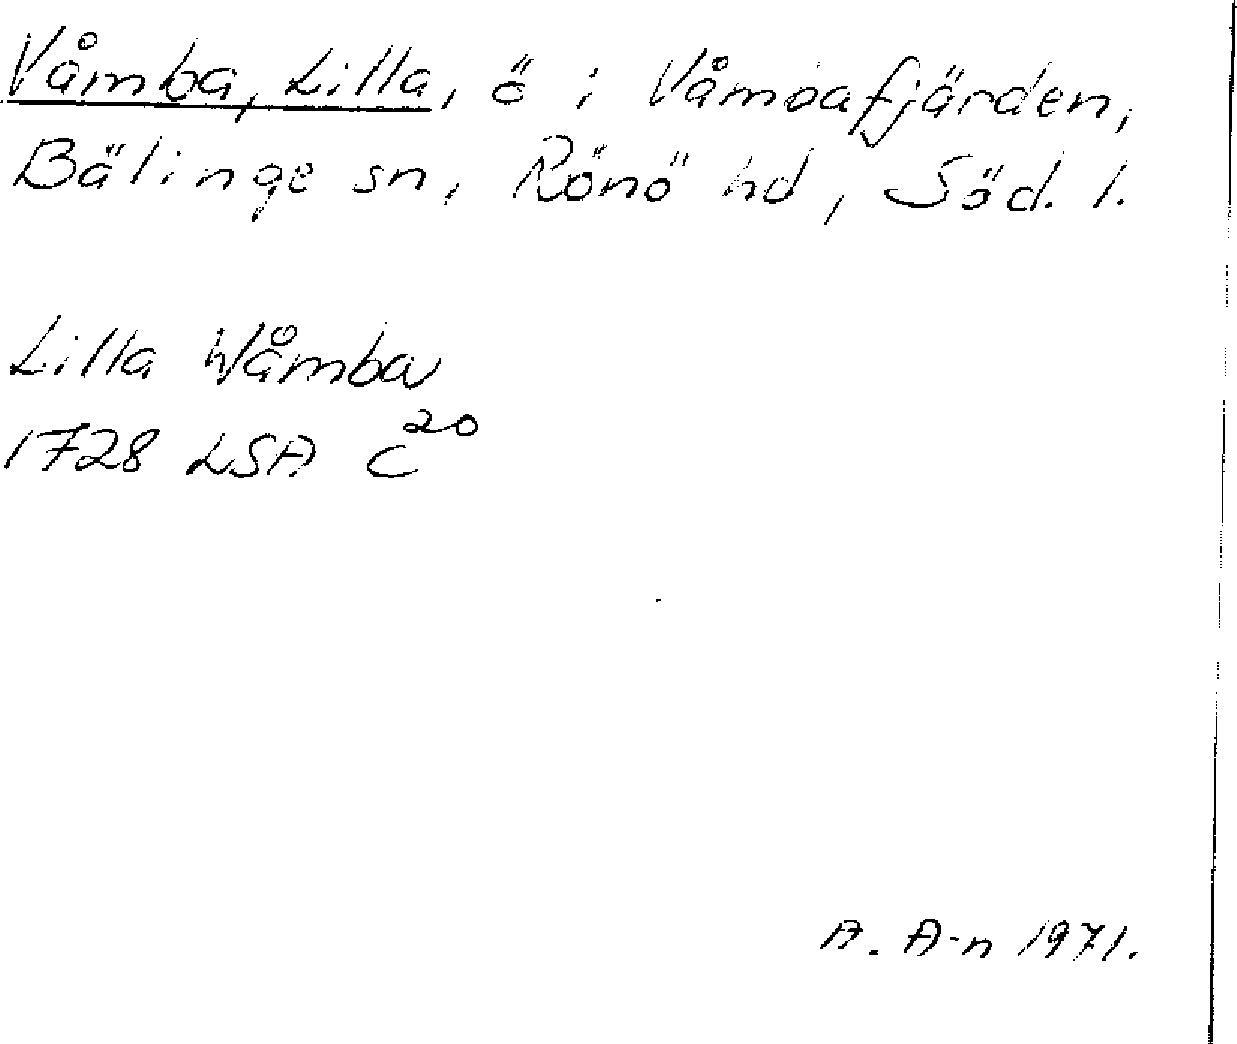 Våmba, Lilla, ö i Våmbafjärden,
Bälinge sn, Rönö hd, Söd. l.
Lilla Wåmba
1728 LSA C²⁰
A. A-n 1971.